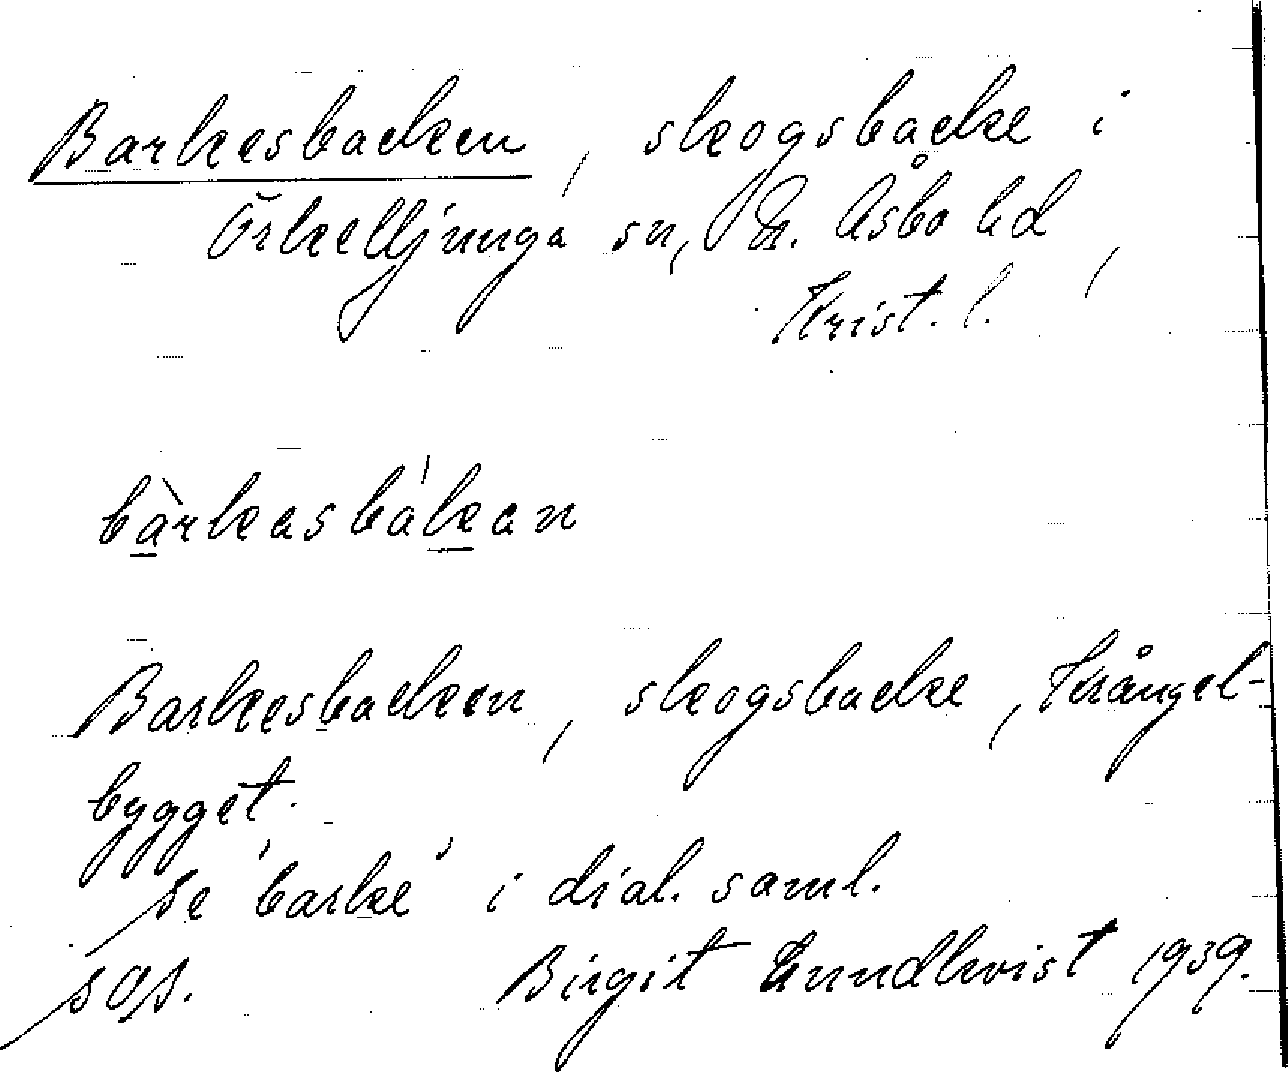 Barkesbacken, skogsbacke i
Örkelljunga sn, N. Åsbo hd,
Krist. l.
bàrkasbákan
Barkesbacken, skogsbacke, Krångel-
bygget.
se 'barke' i dial. saml.
Birgit Lundkvist 1939.